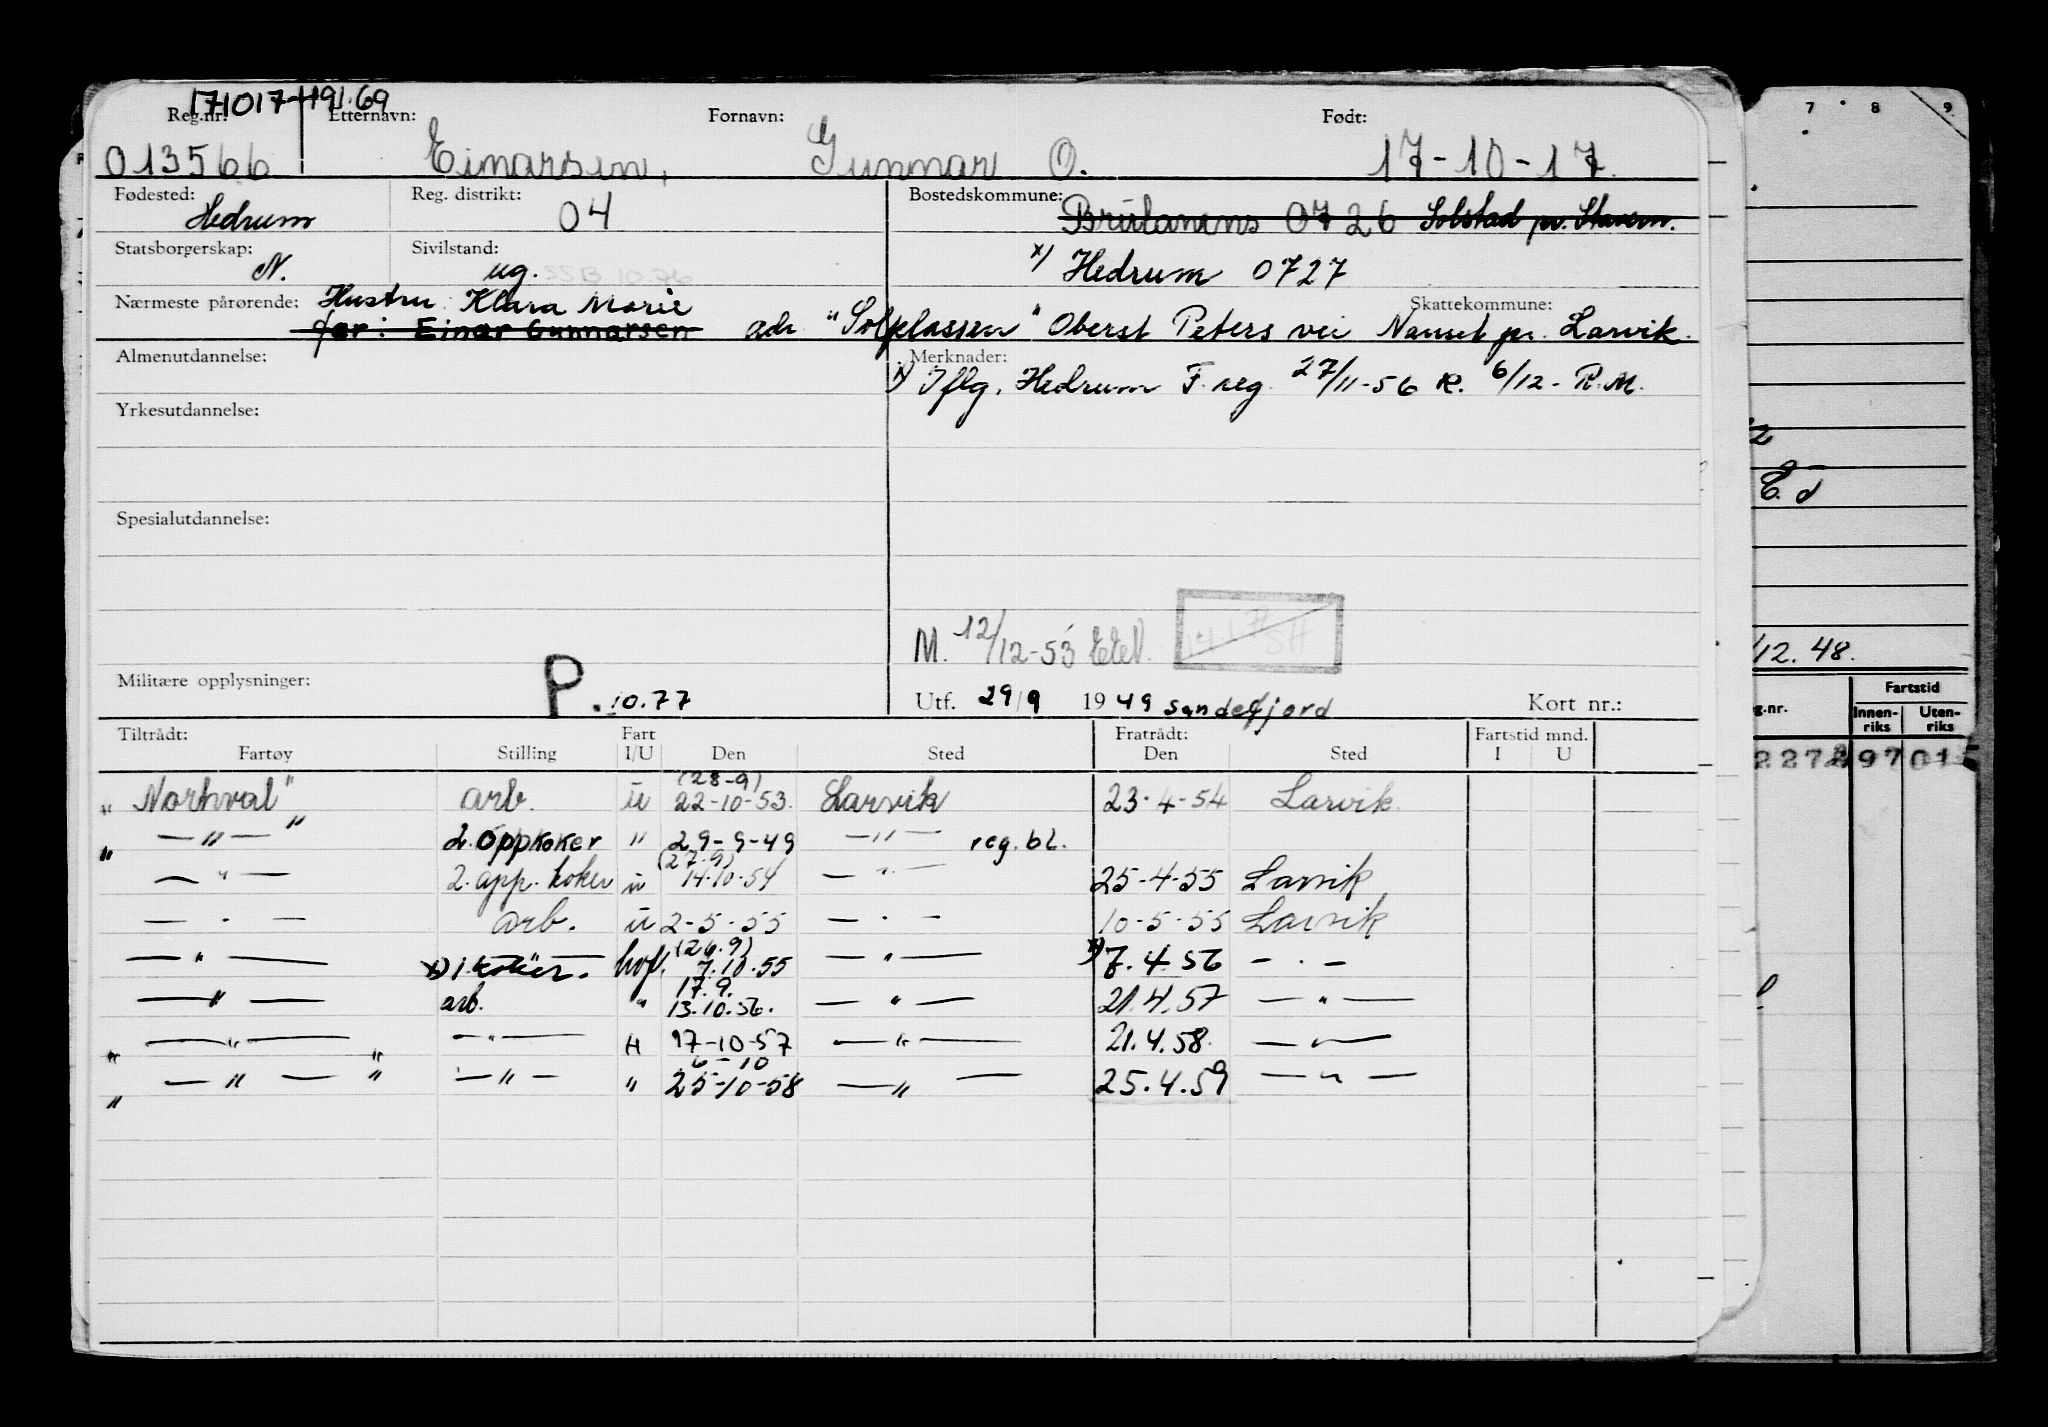 171017-H91.69
Reg.nr: Etternavn: Fornavn: Født:
013566 Einarsen, Gunnar O. 17-10-17.
Fødested: Reg. distrikt: Bostedskommune:
Hedrum 04 Brulanens 0726 Solstad pr. Stavern.
Statsborgerskap: Sivilstand:
N. ug. SSB 10.76 x) Hedrum 0727
Nærmeste pårørende: Hustru Klara Marie Skattekommune:
far: Einar Gunnarsen adr. "Solplassen" Oberst Peters vei Nanset pr. Larvik.
Almenutdannelse: Merknader:
x) Iflg. Hedrum F. reg. 27/11-56 K. 6/12- R.M.
Yrkesutdannelse:
Spesialutdannelse:
M. 12/12-53
Militære opplysninger: P. 10.77 Utf. 29/9 1949 Sandefjord Kort nr.:
Tiltrådt: Fart Fratrådt: Fartstid mnd.
Fartøy Stilling I/U Den Sted Den Sted I U
(28-9)
"Norhval" arb. u 22-10-53. Larvik 23-4-54 Larvik.
" —"— " 2. Oppkoker " 29-9-49 —"— reg.bl.
(27.9)
—"— 2. opp. koker u 14-10-54 —"— 25-4-55 Larvik
— " — arb. u 2-5-55 — " — 10-5-55 Larvik
(26.9)
—"— x) 1. koker. hvf. 7.10.55 —"— x) 7.4.56 — " —
17.9.
—"— arb. " 13.10.56. —"— 21.4.57 —"—
" —"— " —"— H 17-10-57 —"— 21.4.58. —"—
6-10
" —"— " —"— " 25-10-58 —"— 25.4.59 —"—
7 8 9
/12.48.
g.nr. Fartstid
Innen-riks Uten-riks